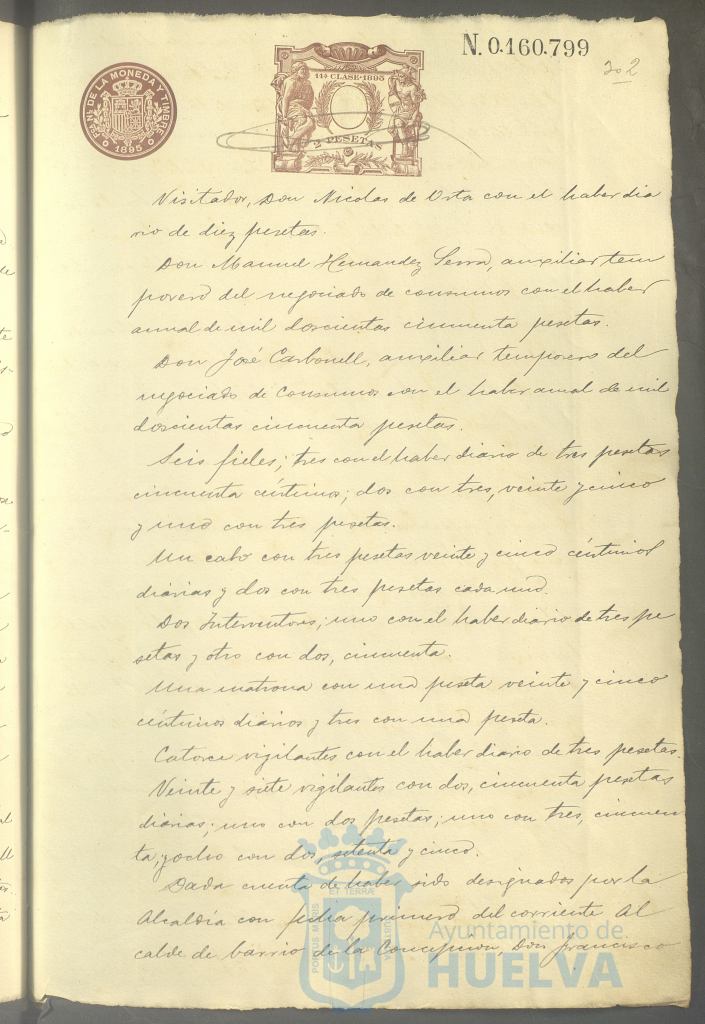 N. 0.160.799
302
FÁB. NAL DE LA MONEDA Y TIMBRE
1895
11ª CLASE·1895
2 PESETAS
Visitador, Don Nicolas de Orta con el haber dia
rio de diez pesetas.
Don Manuel Hernandez Serra, auxiliar tem
porero del negociado de consumos con el haber
anual de mil doscientas cincuenta pesetas.
Don José Carbonell, auxiliar temporero del
negociado de Consumos con el haber anual de mil
doscientas cincuenta pesetas.
Seis fieles; tres con el haber diario de tres pesetas
cincuenta céntimos; dos con tres, veinte y cinco
y uno con tres pesetas.
Un cabo con tres pesetas veinte y cinco céntimos
diarias y dos con tres pesetas cada uno.
Dos Interventores; uno con el haber diario de tres pe
setas y otro con dos, cincuenta.
Una matrona con una peseta veinte y cinco
céntimos diarios y tres con una peseta.
Catorce vigilantes con el haber diario de tres pesetas.
Veinte y siete vigilantes con dos, cincuenta pesetas
diarias; uno con dos pesetas; uno con tres, cincuen
ta, y ocho con dos, setenta y cinco.
Dada cuenta de haber sido designados por la
Alcaldía con fecha primero del corriente Al
calde de barrio de la Concepcion, Don Francisco
PORTUS MARIS ET TERRAE CUSTODIA
Ayuntamiento de
HUELVA